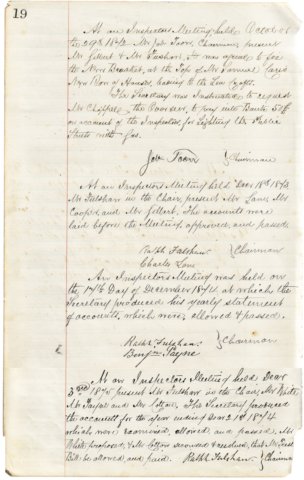 19
At an Inspectors Meeting held October
the 29th 1874 Mr Job Toon, Chairman present
Mr Gilbert & Mr Fulshaw. It was agreed to
the More Breasted, at the Top of Mr Samuel
New Row of Houses, leading to the
The Secretary was Instructed to request
Mr Chappell, the Overseer, to pay into Bank
on account of the Inspectors, for Lighting the Public
Streets with Gas.
Job Toon } Chairman
At an Inspectors Meeting held Decr 18th 1873
Mr Fulshaw in the Chair, present Mr Lane, Mr
Cooper and Mr Gilbert, The accounts were
laid before the Meeting, approved, and passed.
Ralph Fulshaw } Chairman
Charles Lane
An Inspectors Meeting was held on
the 17th Day of December 1874 at which the
Secretary produced his yearly statement
of accounts, which were, allowed & passed.
Ralph Fulshaw } Chairman
Benjn Payne
At an Inspectors Meeting held Decr
3rd 1875 present Mr Fulshaw in the Chair, Mr White,
Mr and Mr The Secretary produced
the accounts for the year ending Decr 21st 1874
which were examined, allowed and passed, Mr
White proposed, & Mr seconded & resolved, that Mr
Bill be allowed and paid. Ralph Fulshaw } Chairman